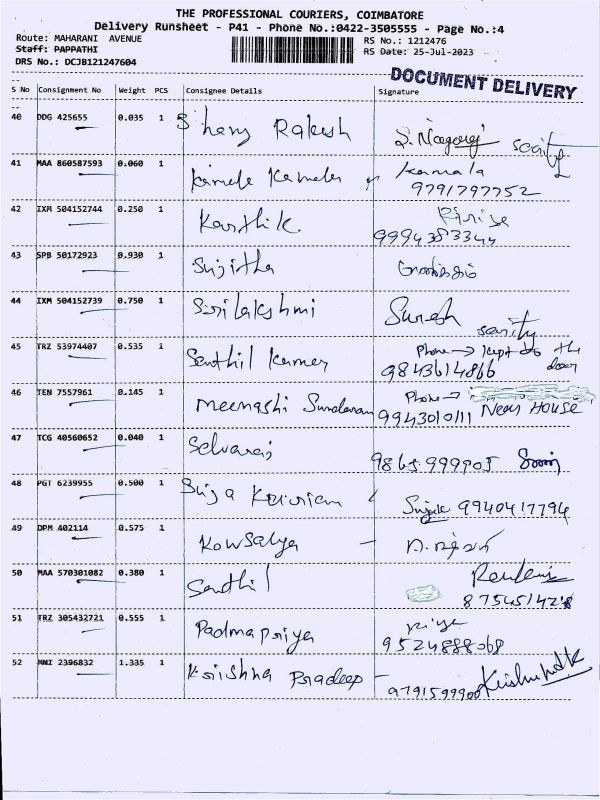 THE PROFESSIONAL COURIERS, COIMBATORE
Delivery Runsheet - P41 - Phone No.:0422-3505555 - Page No.:4
Route: MAHARANI AVENUE RS No.: 1212476
Staff: PAPPATHI RS Date: 25-Jul-2023
DRS No.: DCJB121247604
DOCUMENT DELIVERY
S No Consignment No Weight PCS Consignee Details Signature
40 DDG 425655 0.035 1 Rakesh S. Nagaraj
41 MAA 860587593 0.060 1 Kamala
9791797752
42 IXM 504152744 0.250 1 Karthik
9994383344
43 SPB 50172923 0.930 1 Sujitha
44 IXM 504152739 0.750 1 Srilakshmi Suresh
45 TRZ 53974407 0.535 1 Senthil Kumar Phone → kept to the
9843614866 door
46 TEN 7557961 0.145 1 Meenashi Sundaram Phone →
9943010111 Near House
47 TCG 40560652 0.040 1 Selvaraj
9865999905
48 PGT 6239955 0.500 1 9940417794
49 DPM 402114 0.575 1 Kowsalya -
50 MAA 570301082 0.380 1 Senthil
51 TRZ 305432721 0.555 1 Padmapriya Priya
9524888068
52 MNI 2396832 1.335 1 Krishna Pradeep -
9791599900